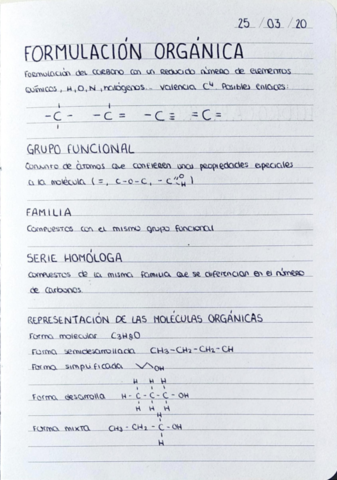 25 / 03 / 20
FORMULACIÓN ORGÁNICA
Formulación del carbono con un reducido número de elementos
químicos, H, O, N, halógenos... valencia C⁴. Posibles enlaces:
-C- -C= -C≡ =C=
GRUPO FUNCIONAL
Conjunto de átomos que confieren unas propiedades especiales
a la molécula (=, C-O-C, -C=O H)
FAMILIA
Compuestos con el mismo grupo funcional
SERIE HOMÓLOGA
Compuestos de la misma familia que se diferencian en el número
de carbonos
REPRESENTACIÓN DE LAS MOLÉCULAS ORGÁNICAS
Forma molecular C3H8O
Forma semidesarrollada CH3-CH2-CH2-OH
Forma simplificada OH
H H H
Forma desarrolla H-C-C-C-OH
H H H
H
Forma mixta CH3-CH2-C-OH
H